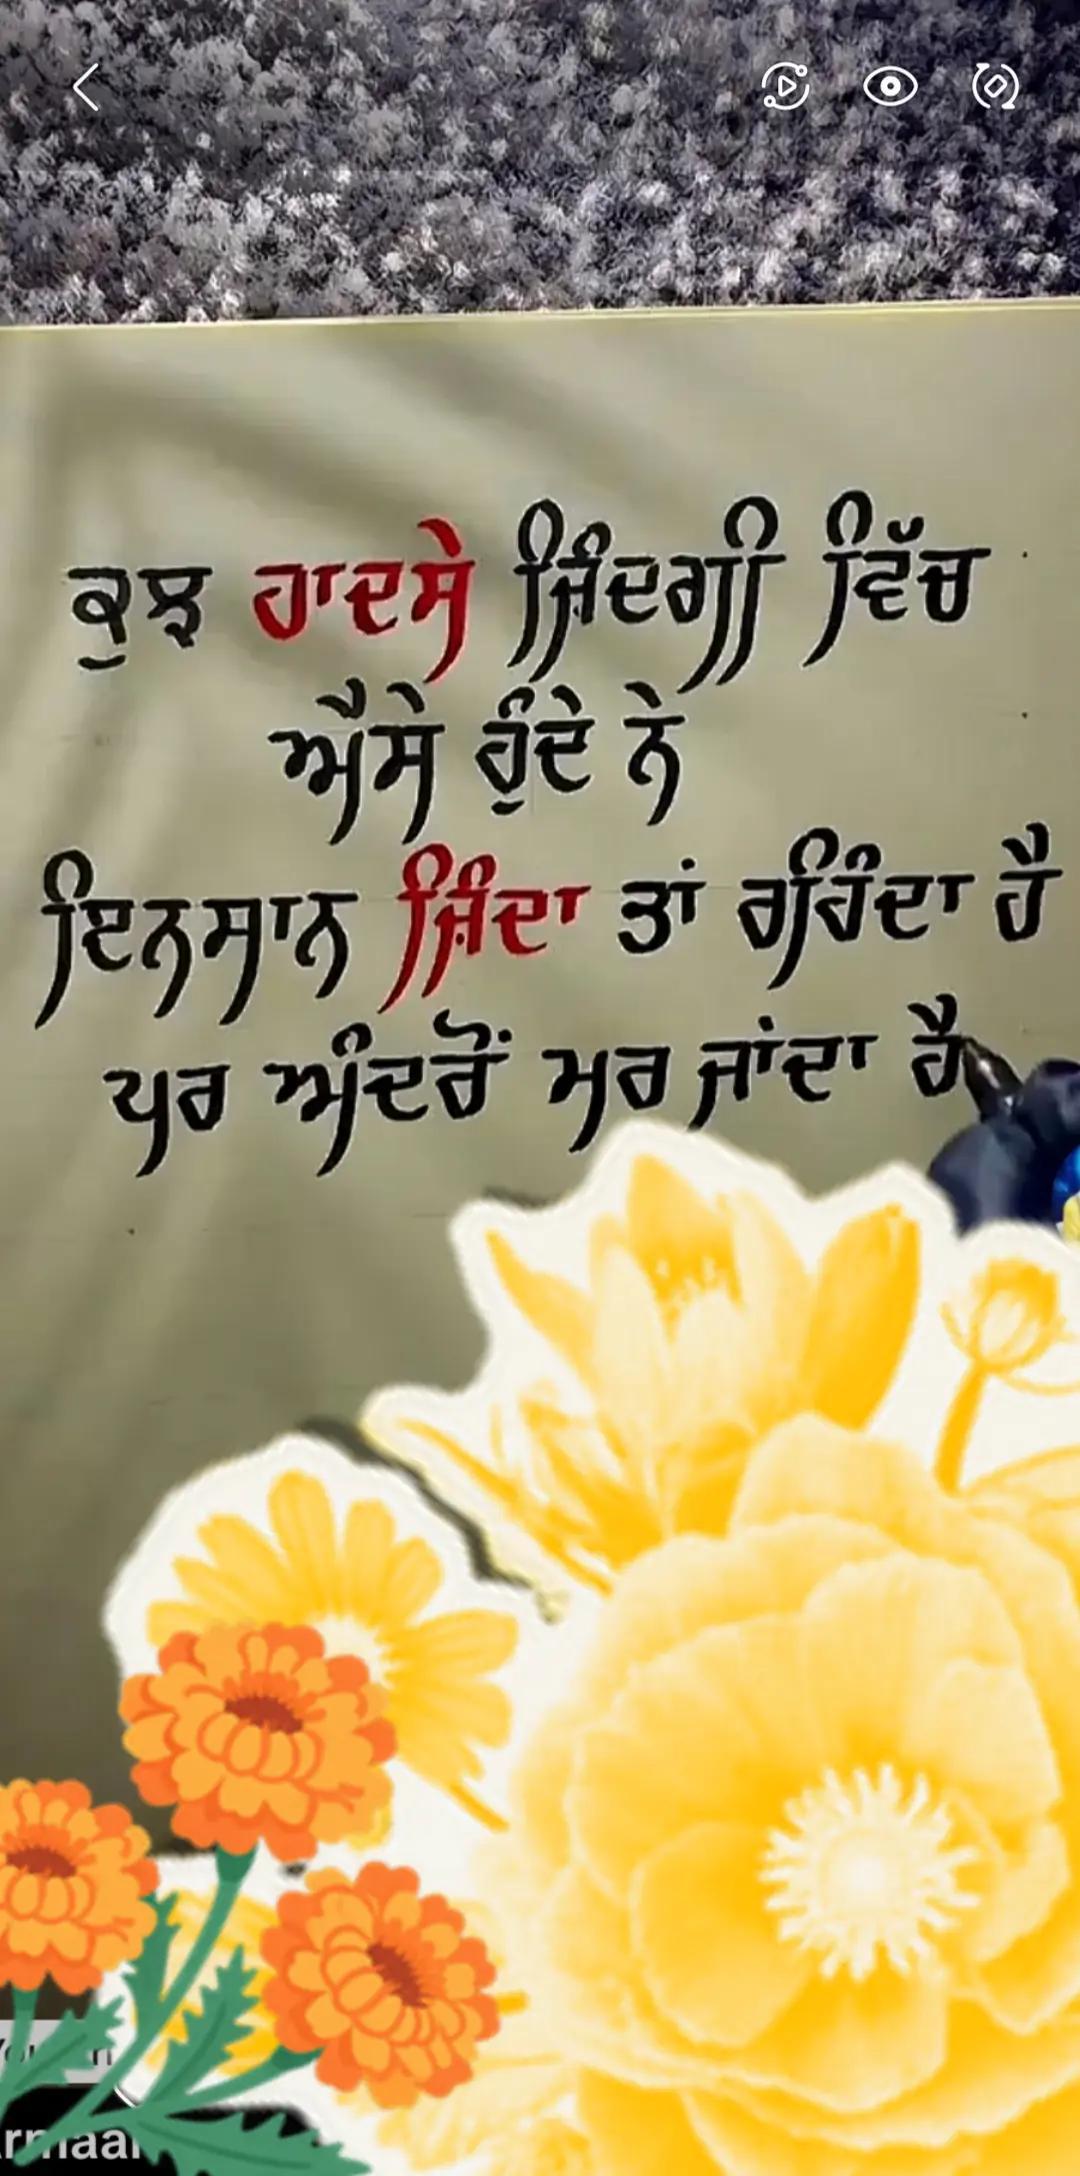 ਕੁਝ ਹਾਦਸੇ ਜ਼ਿੰਦਗੀ ਵਿੱਚ
ਐਸੇ ਹੁੰਦੇ ਨੇ
ਇਨਸਾਨ ਜ਼ਿੰਦਾ ਤਾਂ ਰਹਿੰਦਾ ਹੈ
ਪਰ ਅੰਦਰੋਂ ਮਰ ਜਾਂਦਾ ਹੈ